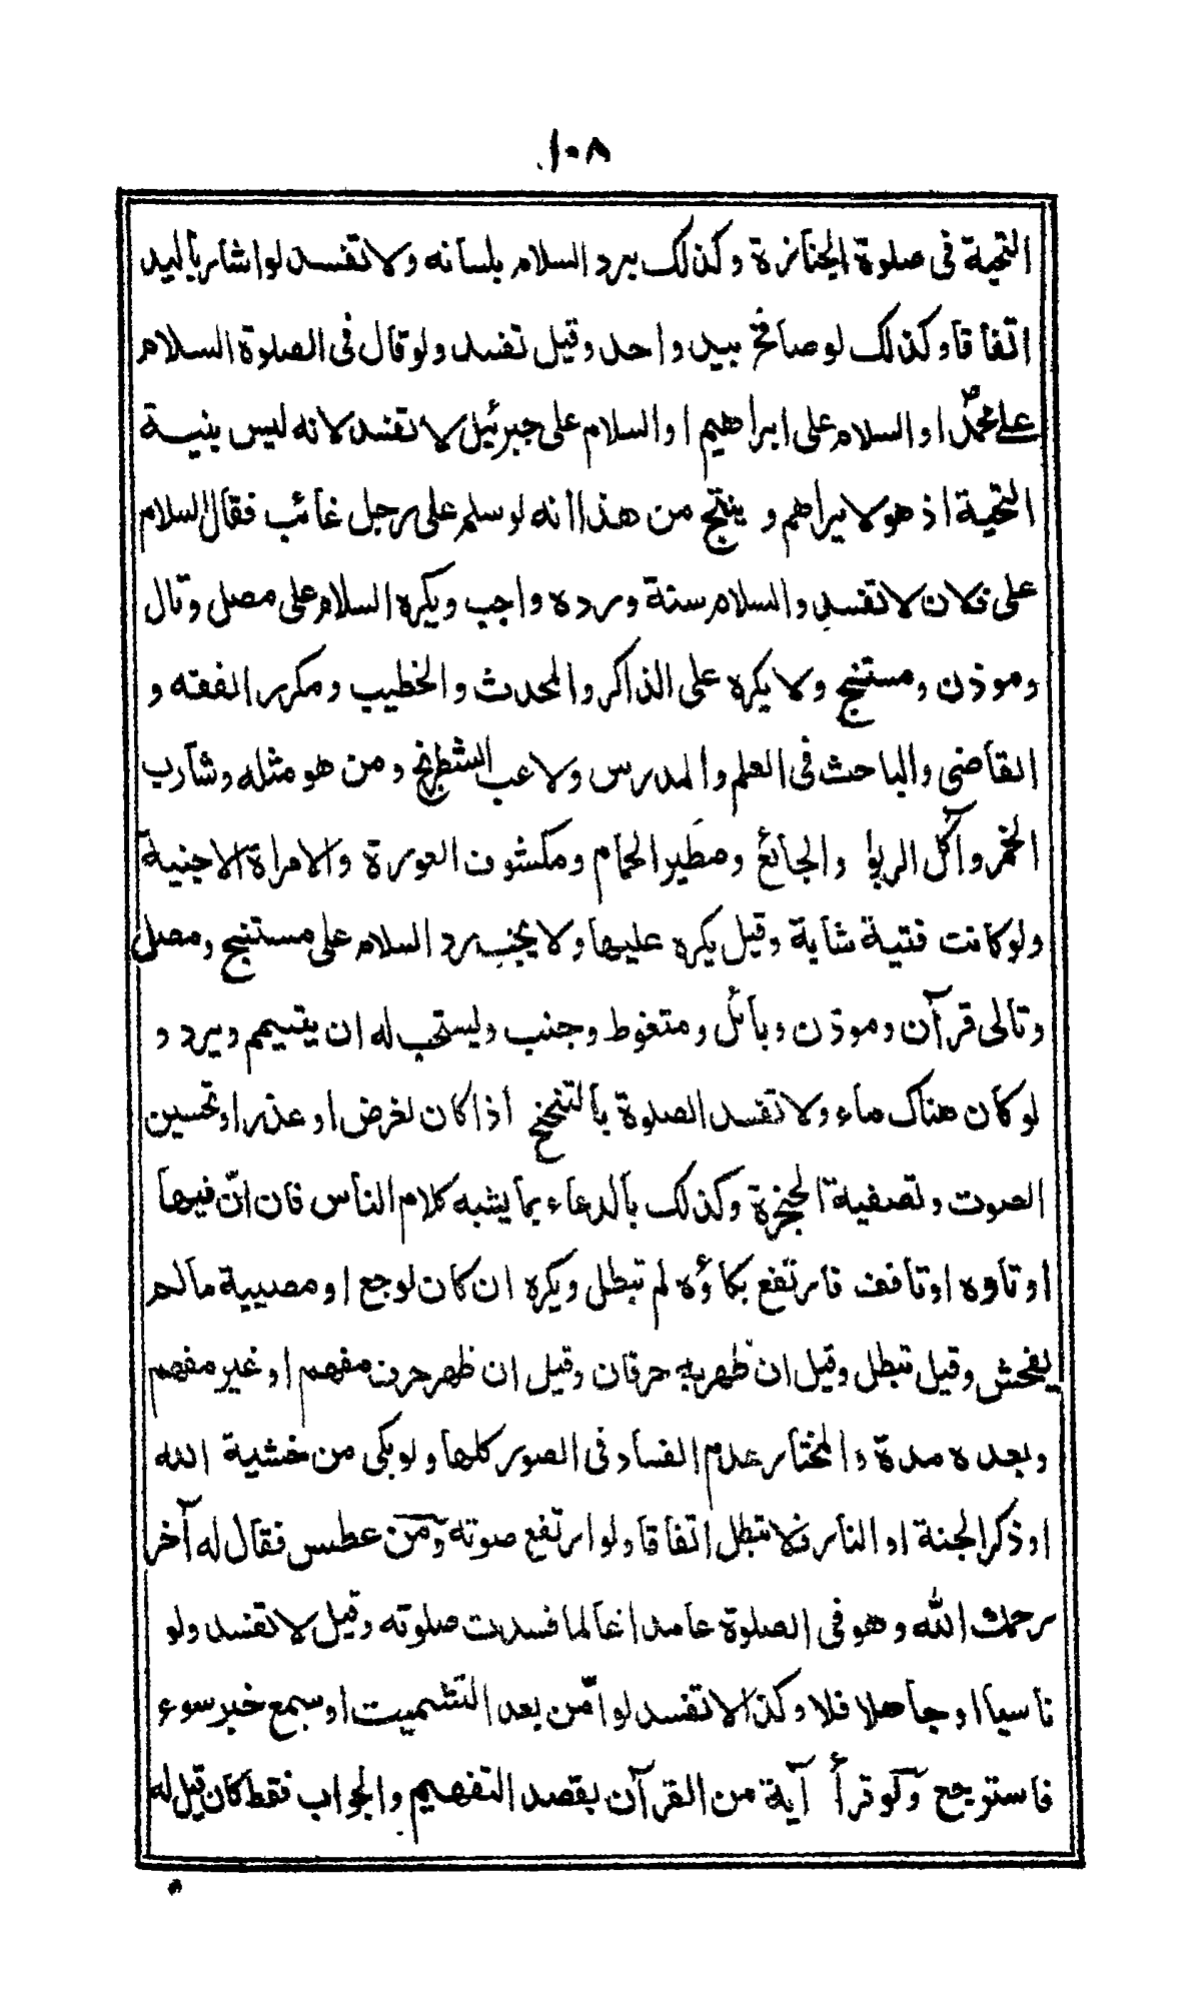 ١٠٨
التحية فى صلوة الجنازة وكذلك برد السلام بلسانه ولا تفسد لو اشار باليد
اتفاقا وكذلك لو صافح بيد واحد وقيل تفسد ولو قال فى الصلوة السلام
على محمدؐ او السلام على ابراهيم او السلام على جبرئيل لا تفسد لانه ليس بنية
التحية اذ هو لابراهم و ينتج من هذا انه لو سلم على رجل غائب فقال السلام
على فلان لا تفسد والسلام سنة ورده واجب ويكره السلام على مصل وتال
وموذن ومستنج ولا يكره على الذاكر والمحدث والخطيب ومكرر الفقه و
القاضى والباحث فى العلم والمدرس ولاعب الشطرنج ومن هو مثله وشارب
الخمر وآكل الربوا والجائع ومطير الحمام ومكشوف العورة والامراة الاجنبية
ولو كانت فتية شابة وقيل يكره عليها ولا يجب رد السلام على مستنج ومصل
وتالى قرآن وموذن وبائل ومتغوط وجنب وليستحب له ان يتيمم ويرد و
لو كان هناك ماء ولا تفسد الصلوة بالتنحنح اذا كان لغرض او عذر او تحسين
الصوت وتصفية الحنجرة وكذلك بالدعاء بما يشبه كلام الناس فان انّ فيها
او تاوه او تافف فارتفع بكاؤه لم تبطل ويكره ان كان لوجع او مصيبة مالم
يفحش وقيل تبطل وقيل ان ظهر به حرفان وقيل ان ظهر حرف مفهم او غير مفهم
وبعده مدة والمختار عدم الفساد فى الصور كلها ولو بكى من خشية الله
او ذكر الجنة او النار فلا تبطل اتفاقا ولو ارتفع صوته ومن عطس فقال له آخر
رحمك الله وهو فى الصلوة عامدا عالما فسدت صلوته وقيل لا تفسد ولو
ناسيا او جاهلا فلا وكذا لا تفسد لو امّن بعد التشميت او سمع خبر سوء
فاسترجع ولو قرأ آية من القرآن بقصد التفهيم والجواب فقط كان قيل له